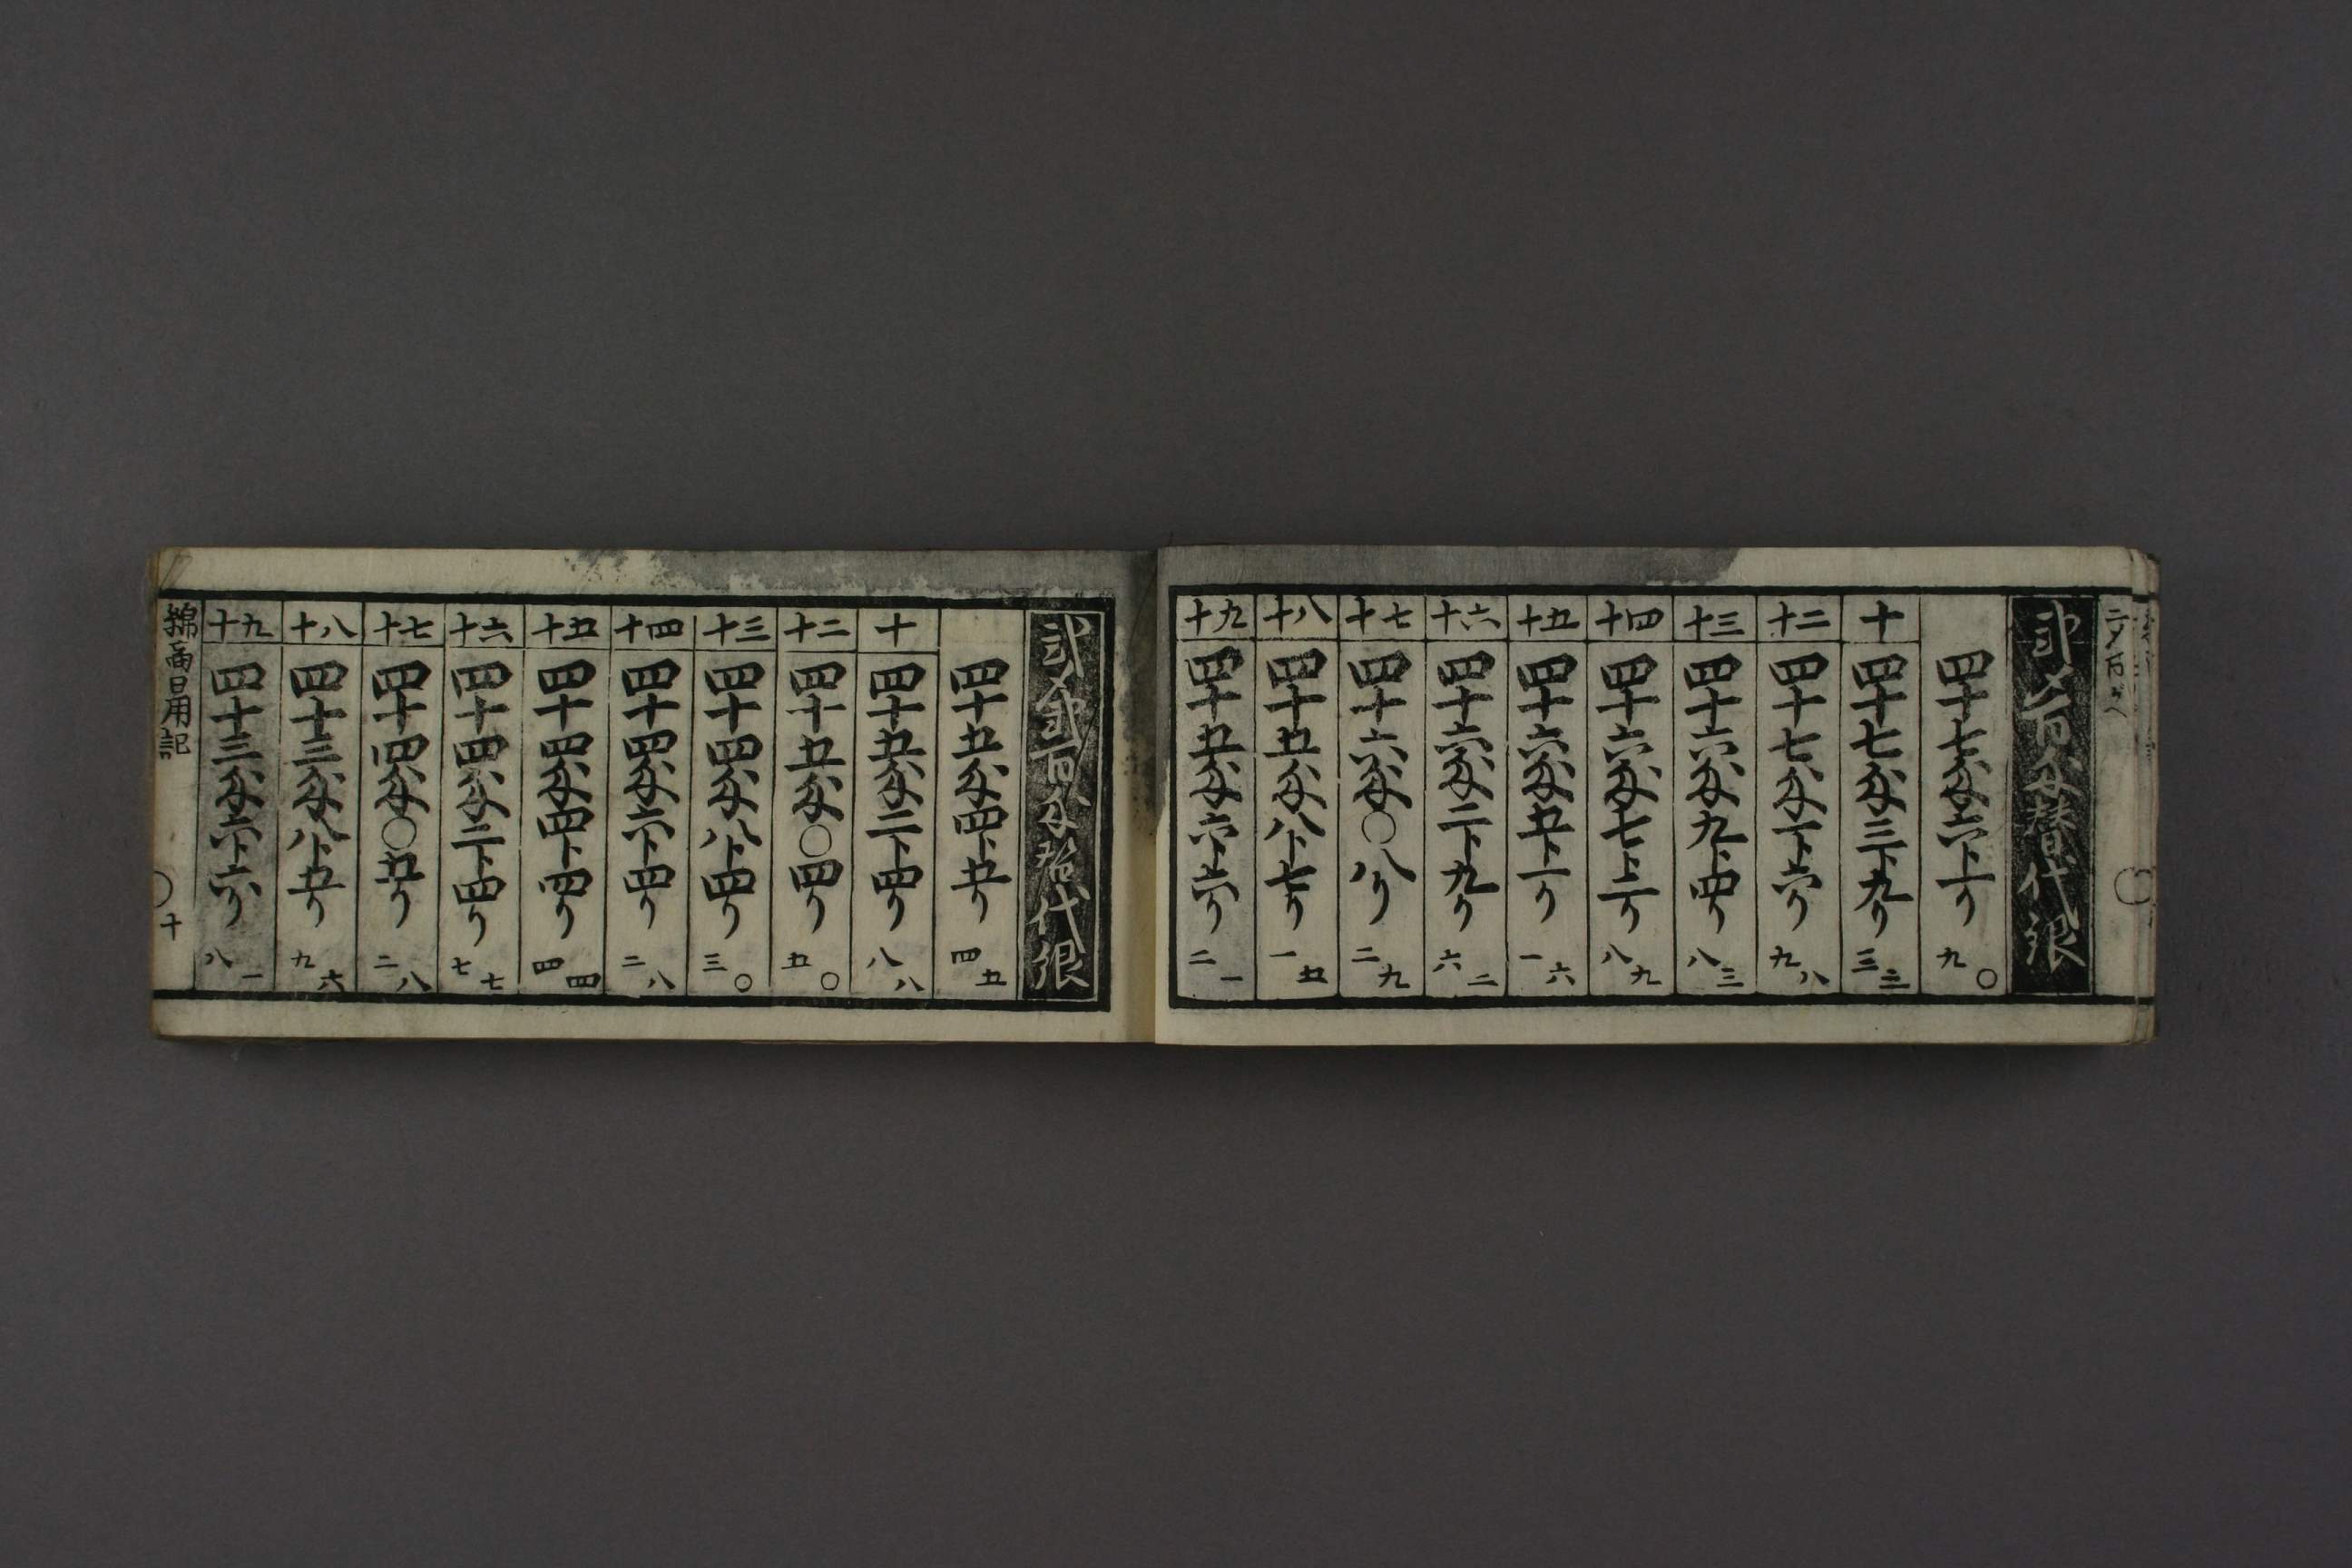 弐〆百匁替代銀
四十七匁六分一り九〇
十 四十七匁三分九り三三
十二 四十七匁一分六り九八
十三 四十六匁九分四り八三
十四 四十六匁七分二り八九
十五 四十六匁五分一り一六
十六 四十六匁二分九り六二
十七 四十六匁〇八り二九
十八 四十五匁八分七り一五
十九 四十五匁六分六り二一
弐〆弐百匁替代銀
四十五匁四分五り四五
十 四十五匁二分四り八八
十二 四十五匁〇四り五〇
十三 四十四匁八分四り三〇
十四 四十四匁六分四り二八
十五 四十四匁四分四り四四
十六 四十四匁二分四り七七
十七 四十四匁〇五り二八
十八 四十三匁八分五り九六
十九 四十三匁六分六り八一
綿商日用記 〇十